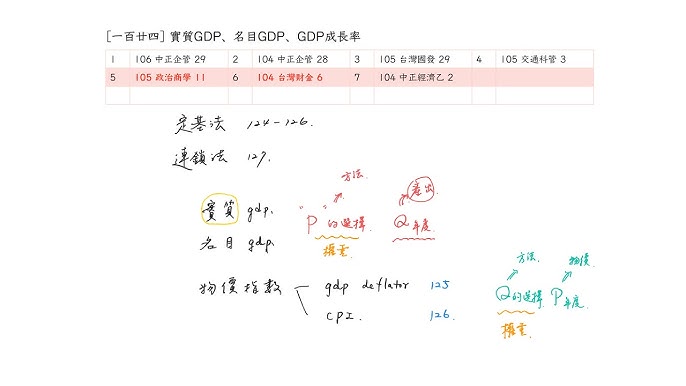 [一百廿四] 實質GDP、名目GDP、GDP成長率
1 106 中正企管 29 2 104 中正企管 28 3 105 台灣國發 29 4 105 交通科管 3
5 105 政治商學 11 6 104 台灣財金 6 7 104 中正經濟乙 2
定基法 124-126.
連鎖法 127.
方法. 產出.
實質 gdp. "P" 的選擇 Q年度
權重
名目 gdp.
方法. 物價.
物價指數 gdp deflator 125 Q的選擇 P年度.
CPI. 126. 權重